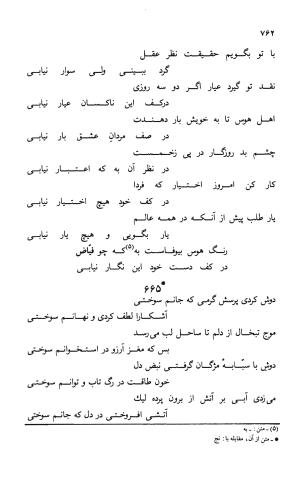 ۷۶۲
با تو بگویم حقیقت نظر عقل
گرد ببینی ولی سوار نیابی
نقد تو گیرد عیار اگر دو سه روزی
درکف این ناکسان عیار نیابی
اهل هوس تا به خویش بار دهندت
در صف مردان عشق بار نیابی
چشم بد روزگار در پی زخمست
در نظر آن به که اعتبار نیابی
کار کن امروز اختیار که فردا
در کف خود هیچ اختیار نیابی
یار طلب پیش از آنکه در همه عالم
یار بگویی و هیچ یار نیابی
رنگ هوس بیوفاست به(۵)که چو فیّاض
در کف دست خود این نگار نیابی
*۶۶۵
دوش کردی پرسش گرمی که جانم سوختی
آشکارا لطف کردی و نهانم سوختی
موج تبخال از دلم تا ساحل لب می‌رسد
بس که مغز آرزو در استخوانم سوختی
دوش با سبّابهٔ مژگان گرفتی نبض دل
خون طاقت در رگ تاب و توانم سوختی
می‌زدی آبی بر آتش از برون پرده لیك
آتشی افروختی در دل که جانم سوختی
(۵) ـ متن: ـ به
* ـ متن از آن، مقابله با: نج